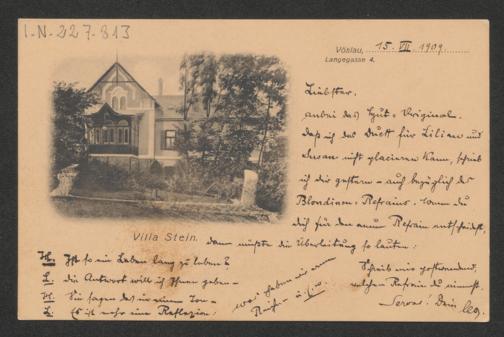 I.N. 227.813
Vöslau, 15. VII 1909.
Langegasse 4.
Liebster,
anbei das Original.
Daß ich das Duett für Lilian und
Susan nicht placieren kann, schrieb
ich dir gestern – auch bezüglich des
Blondinen-Refrains. Wenn du
dich für den neuen Refrain entscheidest,
Villa Stein.
dann müßte die Überleitung so lauten:
H. Ist so ein Leben lang zu leben?
L. die Antwort will ich Ihnen geben –
H. Sie sagen das in einem Ton –
L. Es ist mehr eine Reflexion:
was haben wir
u.s.w.
Schreib mir postwendend,
welchen Refrain du nimmst.
Servus! Dein Leo.